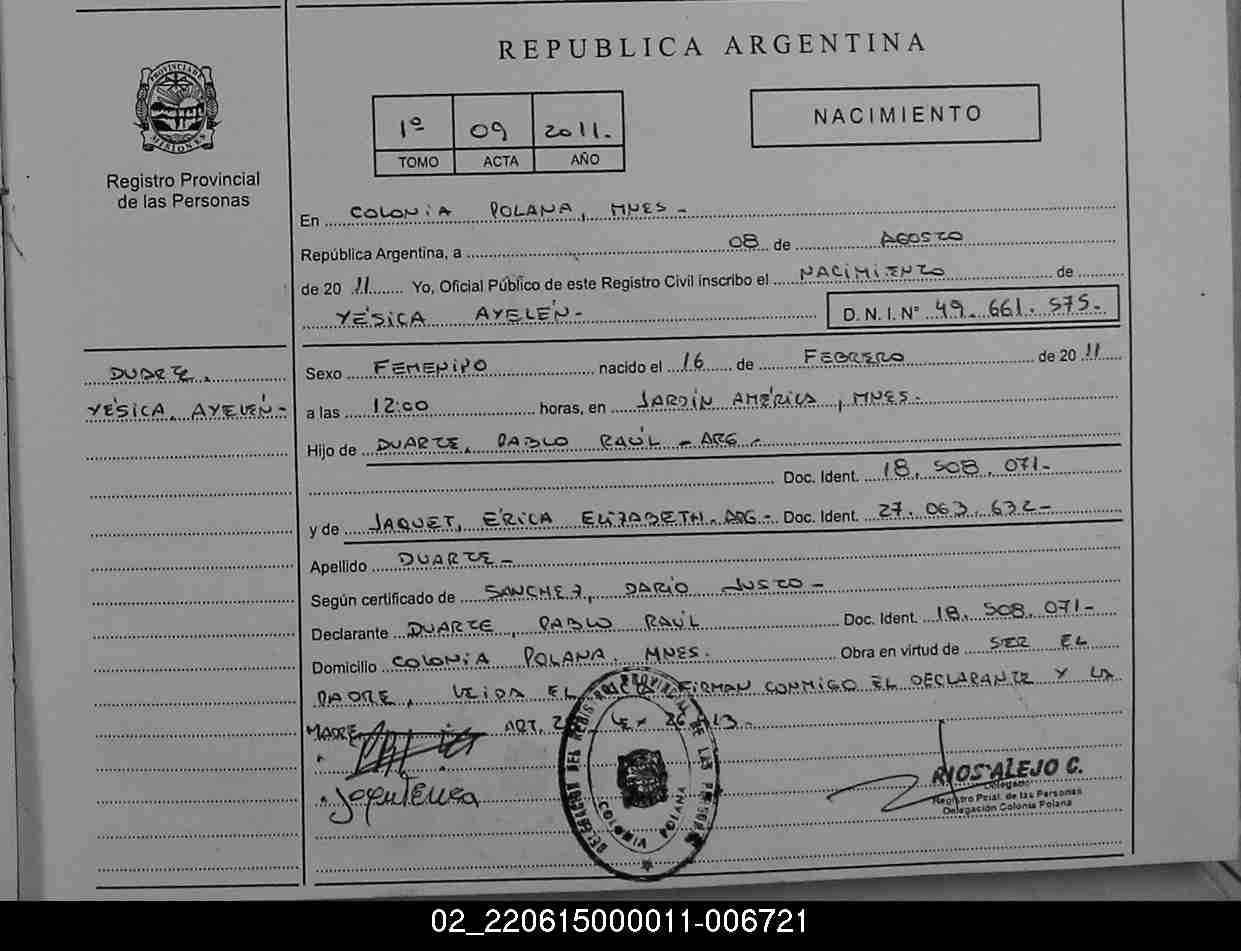 REPUBLICA ARGENTINA
PROVINCIA DE MISIONES
Registro Provincial
de las Personas
1º 09 2011.
TOMO ACTA AÑO
NACIMIENTO
En COLONIA POLANA, MNES -
República Argentina, a 08 de AGOSTO
de 20 11 Yo, Oficial Público de este Registro Civil inscribo el NACIMIENTO de
YÉSICA AYELÉN-
D. N. I. Nº 49. 661. 575.-
DUARTE,
YÉSICA, AYELÉN-
Sexo FEMENINO nacido el 16 de FEBRERO de 20 11
a las 12:00 horas, en JARDÍN AMÉRICA, MNES.
Hijo de DUARTE, PABLO RAÚL - ARG -
Doc. Ident. 18. 508. 071-
y de JAQUET, ERICA ELIZABETH. ARG- Doc. Ident. 27. 063. 632-
Apellido DUARTE-
Según certificado de SANCHEZ, DARIO JUSTO -
Declarante DUARTE, PABLO RAÚL Doc. Ident. 18. 508. 071-
Domicilio COLONIA POLANA, MNES. Obra en virtud de SER EL
PADRE, LEIDA EL ACTA FIRMAN CONMIGO EL DECLARANTE Y LA
MADRE ART. LEY 26413-
DELEGACION DEL REGISTRO PROVINCIAL DE LAS PERSONAS
COLONIA POLANA
RIOS ALEJO C.
Delegado
Registro Pcial. de las Personas
Delegación Colonia Polana
02_220615000011-006721